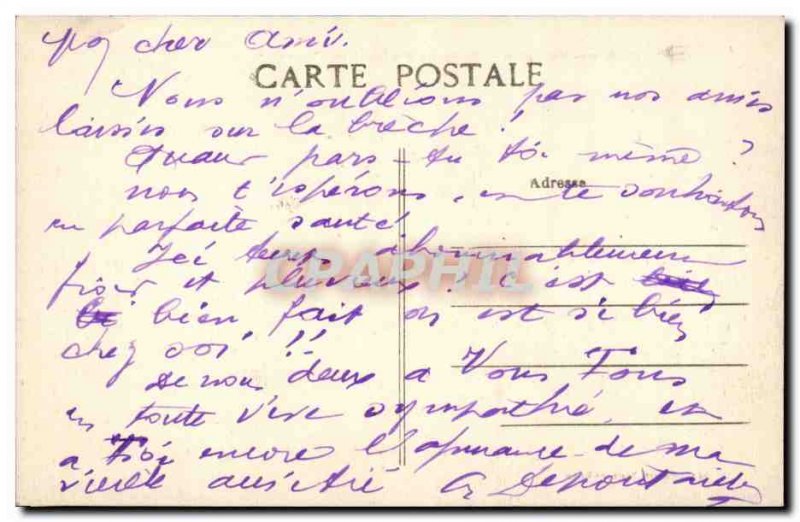 cher Ami.
CARTE POSTALE
Nous n'oublions pas nos amis
laissés sur la brèche !
Quand pars-tu toi même ?
nous t'espérons, en te souhaitons
Adresse
en parfaite santé
Ici temps abominablement
froid et pluvieux ! C'est
bien fait on est si bien
chez soi !!
De nous deux a Vous Tous
en toute vive sympathie, et
a Toi encore l'assurance de ma
vieille amitié
CPAPHIL